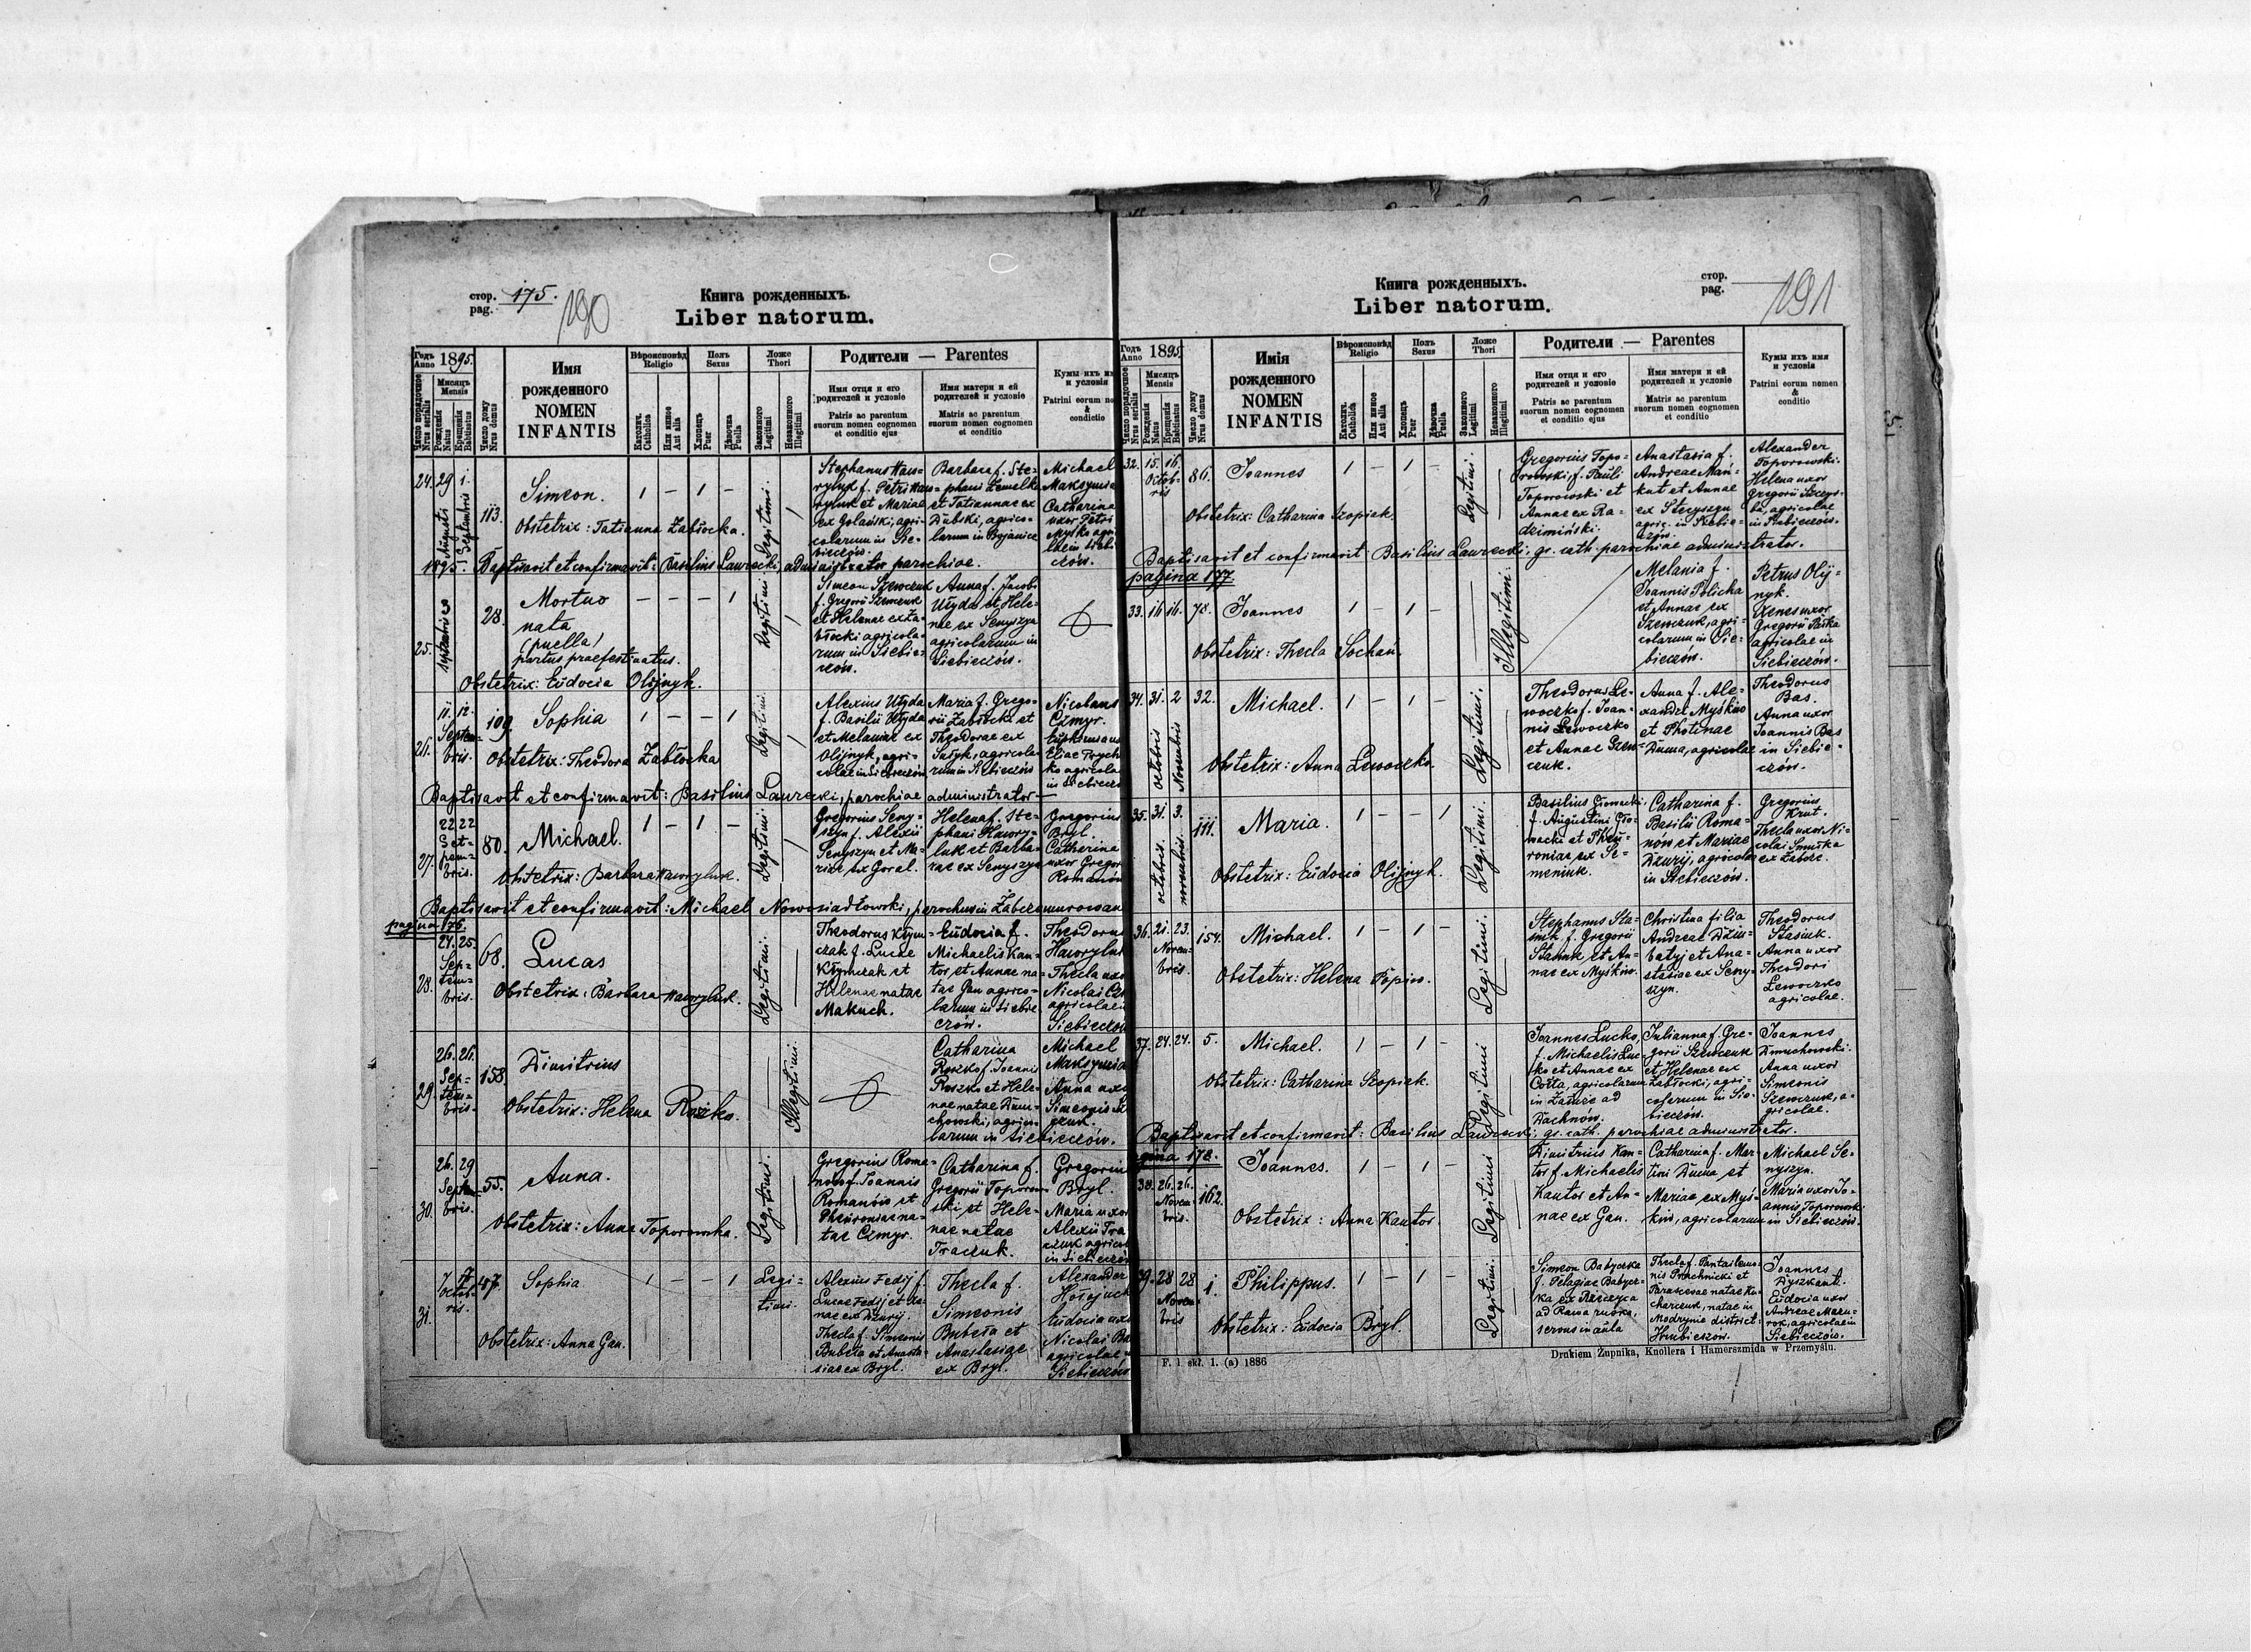 стор. 175.
pag.
190
Книга рожденныхъ.
Liber natorum.
Годъ 1895.
Anno
Мѣсяцъ
Mensis
Число порядочное
Nrus serialis
Рожденія
Natus
Крещенія
Babtisatus
Число дому
Nrus domus
Имя
рожденного
NOMEN
INFANTIS
Вѣроисповѣд
Religio
Католич.
Catholica
Или иное
Aut alia
Полъ
Sexus
Хлопецъ
Puer
Дѣвочка
Puella
Ложе
Thori
Законного
Legitimi
Незаконного
Illegitimi
Родители — Parentes
Имя отця и его
родителей и условіе
Patris ac parentum
suorum nomen cognomen
et conditio ejus
Имя матери и ей
родителей и условіе
Matris ac parentum
suorum nomen cognomen
et conditio
Кумы ихъ им
и условія
Patrini eorum no
&
conditio
24. 29 1.
Augusti
Septembris
113.
Simeon.
1 — 1 —
Legitimi.
Obstetrix: Tatianna Zabłocka.
Stephanus Haw-
ryluk f. Petri Haw-
ryluk et Mariae
ex Golański, agri-
colarum in Sie-
bieczów.
Barbara f. Ste-
phani Zemelko
et Tatiannae ex
Dubski, agrico-
larum in Bojanice
Michael
Maksymia
Catharina
uxor Petri
Myśko agri
lae in Sieb
czów.
1895. Baptisavit et confirmavit: Basilius Lawrecki, administrator parochiae.
25.
septembris
28.
Mortuo
nata
(puella)
partus praefestinatus.
— — — 1
Legitimi
Obstetrix: Eudocia Olijnyk.
Simeon Szewczuk
f. Gregorii Szewczuk
et Helenae ex Za-
błocki agricola-
rum in Siebie-
czów.
Anna f. Jacobi
Ułyda et Hele-
nae ex Senyszyn
agricolarum in
Siebieczów.
26.
11. 12.
Septem-
bris.
109.
Sophia
1 — — 1
Legitimi.
Obstetrix: Theodora Zabłocka
Alexius Ułyda
f. Basilii Ułyda
et Melaniae ex
Olijnyk, agri-
colae in Siebieczów
Maria f. Grego-
rii Zabłocki et
Theodorae ex
Sałyk, agricola-
rum in Siebieczów
Nicolaus
Czmyr.
Euphemia ux
Eliae Prych
ko agricola
in Siebiecz
Baptisavit et confirmavit: Basilius Lawrecki, parochiae administrator —
27.
22 22
Sep-
tem-
bris.
80.
Michael.
1 — 1 —
Legitimi
Obstetrix: Barbara Hawryluk.
Gregorius Seny-
szyn f. Alexii
Senyszyn et Ma-
riae ex Goral.
Helena f. Ste-
phani Hawry-
luk et Barba-
rae ex Senyszyn
Gregorius
Bryl.
Catharina
uxor Gregor
Romanów
Baptisavit et confirmavit: Michael Nowosiadłowski, parochus in Zabcze murowane
pagina 176.
28.
24. 25.
Sep-
tem-
bris.
68.
Lucas
Legitimi.
Obstetrix: Barbara Hawryluk.
Theodorus Kłym-
czak f. Lucae
Kłymczak et
Helenae natae
Makuch.
Eudocia f.
Michaelis Kan-
tor, et Annae na-
tae Gan agrico-
larum in Siebie
czów.
Theodorus
Hawryluk
Thecla uxor
Nicolai Cz
agricolae in
Siebieczów
29.
26. 26.
Sep-
tem-
bris.
158.
Dimitrius
Illegitimi.
Obstetrix: Helena Roszko.
Catharina
Roszko f. Joannis
Roszko et Hele-
nae natae Dmu-
chowski, agrico-
larum in Siebieczów.
Michael
Maksymia
Anna uxor
Simeonis Sz
czuk.
30.
26. 29
Septem
bris.
55.
Anna.
Legitimi.
Obstetrix: Anna Toporowska.
Gregorius Roma-
nów f. Joannis
Romanów et
Pheuroniae na-
tae Czmyr.
Catharina f.
Gregorii Toporow-
ski et Hele-
nae natae
Traczuk.
Gregorius
Bryl.
Maria uxor
Alexii Tra
czuk agricol
in Siebieczów
31.
7
Octob-
ris.
47.
Sophia
1 — — 1
Legi-
timi.
Obstetrix: Anna Gan.
Alexius Fedij f.
Lucae Fedij et
nae ex Dżurij.
Thecla f. Simeonis
Bubeła et Anasta-
siae ex Bryl.
Thecla f.
Simeonis
Bubeła et
Anastasiae
ex Bryl.
Alexander
Hołejuch
Eudocia uxor
Nicolai Ba
agricolae
Siebieczów
стор.
pag.
191
Книга рожденныхъ.
Liber natorum.
Годъ 1895.
Anno
Мѣсяцъ
Mensis
Число порядочное
Nrus serialis
Рожденія
Natus
Крещенія
Babtisatus
Число дому
Nrus domus
Имія
рожденного
NOMEN
INFANTIS
Вѣроисповѣд
Religio
Католич.
Catholica
Или иное
Aut alia
Полъ
Sexus
Хлопецъ
Puer
Дѣвочка
Puella
Ложе
Thori
Законного
Legitimi
Незаконного
Illegitimi
Родители — Parentes
Имя отця и его
родителей и условіе
Patris ac parentum
suorum nomen cognomen
et conditio ejus
Имя матери и ей
родителей и условіе
Matris ac parentum
suorum nomen cognomen
et conditio
Кумы ихъ имя
и условія
Patrini eorum nomen
&
conditio
32. 15. 16.
Octob-
ris
86.
Joannes
1 — 1 —
Legitimi.
Obstetrix: Catharina Szopiak.
Gregorius Topo-
rowski, f. Pauli
Toporowski et
Annae ex Ra-
dzimiński.
Anastasia f.
Andreae Mań-
kut et Annae
ex Steryszyn
agric. in Siebie-
czów.
Alexander
Toporowski.
Helena uxor
Gregorii Szczyr-
ba, agricolae
in Siebieczów.
Baptisavit et confirmavit: Basilius Lawrecki, gr. cath. parochiae administrator.
pagina 177.
33. 16 16. 78.
Joannes
1 — 1 —
Illegitimi.
Obstetrix: Thecla Sochań.
Melania f.
Joannis Policha
et Annae ex
Szewczuk, agri-
colarum in Sie-
bieczów.
Petrus Olij-
nyk.
Xenes uxor
Gregorii Paśka
agricolae in
Siebieczów.
34. 31. 2 32.
octobris
Novembris
Michael.
1 — 1 —
Legitimi.
Obstetrix: Anna Lewoczko.
Theodorus Le-
woczko f. Joan-
nis Lewoczko
et Annae Szew-
czuk.
Anna f. Ale-
xandri Myśkiw
et Photinae
Duma, agricolae
Theodorus
Bas.
Anna uxor
Joannis Bas
in Siebie-
czów.
35. 31. 3. 111.
octobris.
novembris.
Maria.
1 — — 1
Legitimi.
Obstetrix: Eudocia Olijnyk.
Basilius Głowacki,
f. Augustini Gło-
wacki et Pheu-
roniae ex Se-
meniuk.
Catharina f.
Basilii Roma-
nów et Mariae
Dżurij, agricolae
in Siebieczów.
Gregorius
Krut.
Thecla uxor Ni-
colai Smutka
ex Zabcze.
36. 21. 23.
Novem-
bris.
154.
Michael.
1 — 1 —
Legitimi.
Obstetrix: Helena Popiw.
Stephanus Sta-
siuk f. Gregorii
Stasiuk et An-
nae ex Myśkiw.
Christina filia
Andreae Dziu-
batyj et Ana-
stasiae ex Seny-
szyn.
Theodorus
Stasiuk.
Anna uxor
Theodori
Lewoczko
agricolae.
37. 24. 24. 5.
Michael.
1 — 1 —
Legitimi
Obstetrix: Catharina Szopiak.
Joannes Łucko,
f. Michaelis Łuc-
ko et Annae ex
Cota, agricolarum
in Załuże ad
Dachnów.
Julianna f. Gre-
gorii Szewczuk
et Helenae ex
Zabłocki, agri-
colarum in Sie-
bieczów.
Joannes
Dmuchowski.
Anna uxor
Simeonis
Szewczuk, a-
gricolae.
Baptisavit et confirmavit: Basilius Lawrecki, gr. cath. parochiae administrator.
agina 178.
38. 26. 26.
Novem-
bris.
162.
Joannes.
1 — 1 —
Legitimi
Obstetrix: Anna Kantor
Dimitrius Kan-
tor f. Michaelis
Kantor et An-
nae ex Gan.
Catharina f. Mar-
tini Duma et
Mariae ex Myś-
kiw, agricolarum
Michael Se-
nyszyn.
Maria uxor Jo-
annis Toporowski
in Siebieczów.
39. 28 28
Novem-
bris
1
Philippus.
1 — 1 —
Legitimi.
Obstetrix: Eudocia Bryl.
Simeon Babyczka
f. Pelagiae Babycz-
ka ex
ad Rawa ruska,
servus in aula
Thecla f. Pantaileimo-
nis Prachnicki et
Parascevae natae Ku-
charczuk, natae in
Modrynie district:
Hrubieszow.
Joannes
Dyszkant.
Eudocia uxor
Andreae Mazu-
rok, agricolae in
Siebieczów.
F. 1 skł. 1. (a) 1886
Drukiem Żupnika, Knollera i Hamerszmida w Przemyślu.